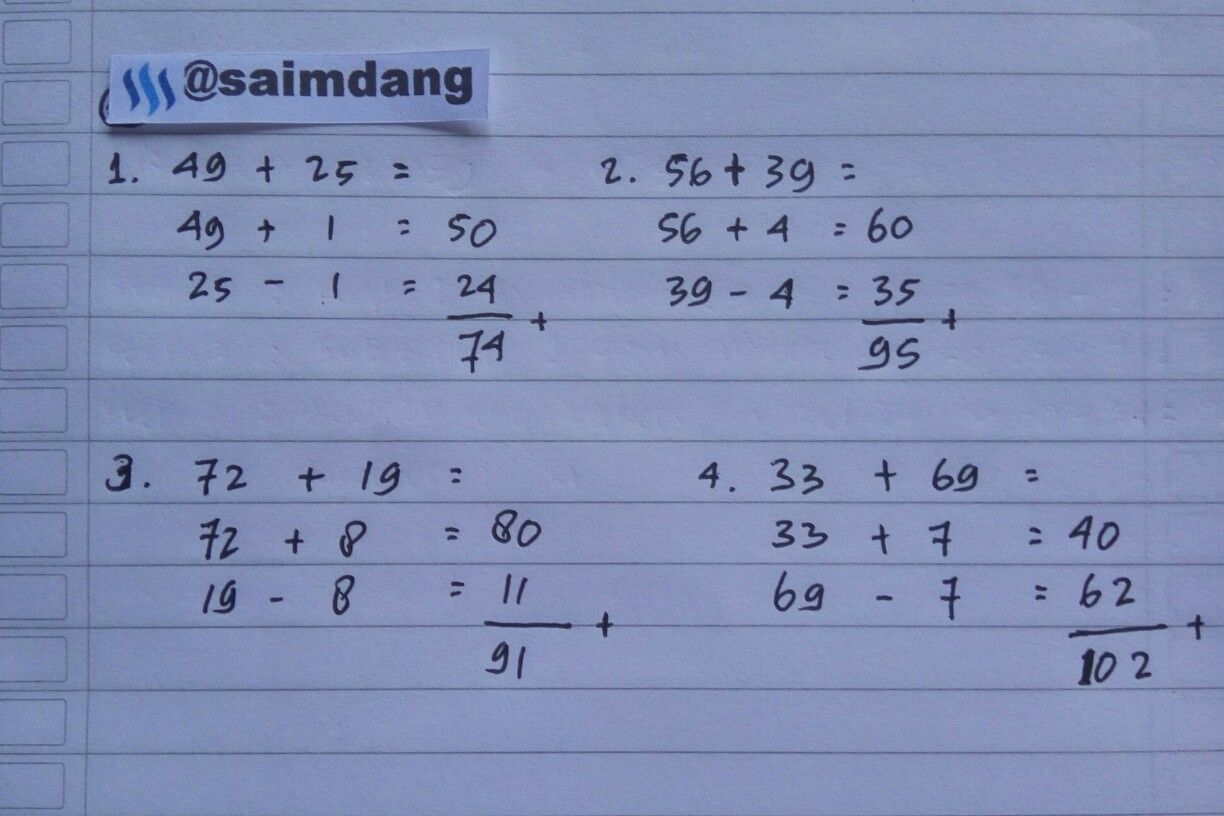 @saimdang
1. 49 + 25 =
49 + 1 = 50
25 - 1 = 24
+
74
2. 56 + 39 =
56 + 4 = 60
39 - 4 = 35
+
95
3. 72 + 19 =
72 + 8 = 80
19 - 8 = 11
+
91
4. 33 + 69 =
33 + 7 = 40
69 - 7 = 62
+
102